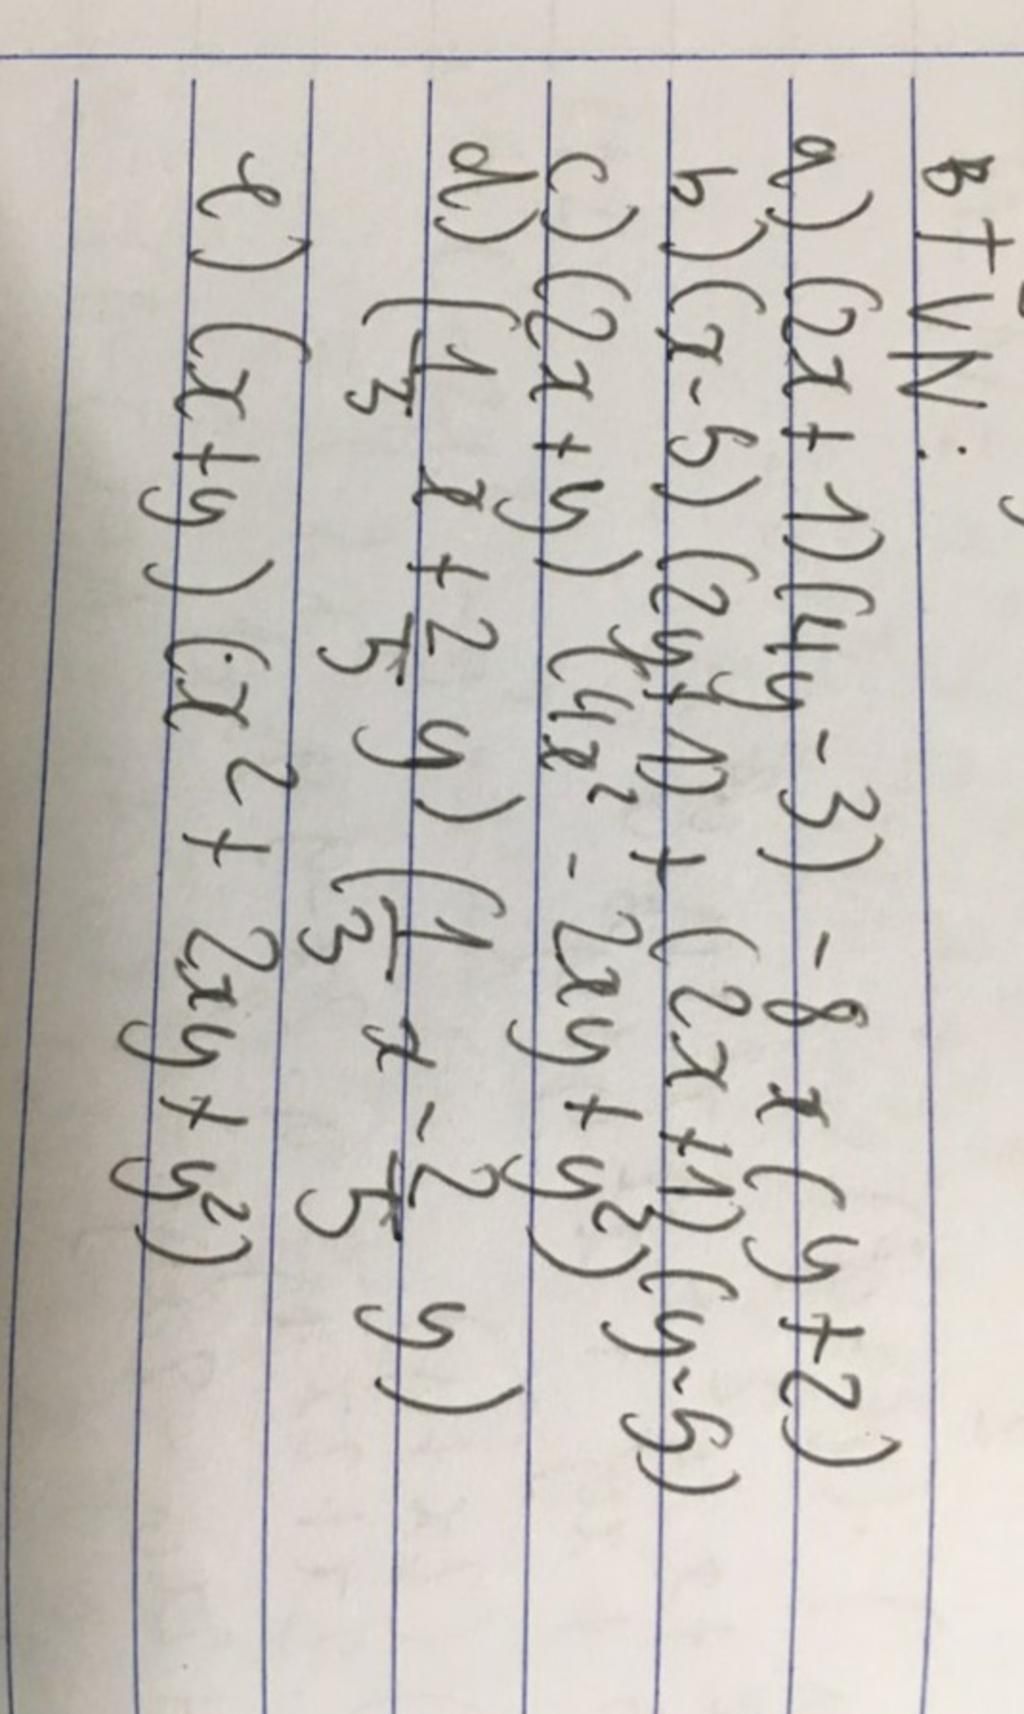 BTVN:
a) (2x + 1)(4y - 3) - 8x(y + 2)
b) (x - 5)(2y + 1) + (2x + 1)(y - 5)
c) (2x + y)(4x² - 2xy + y²)
d) (1/3 x + 2/5 y)(1/3 x - 2/5 y)
e) (x + y)(x² + 2xy + y²)